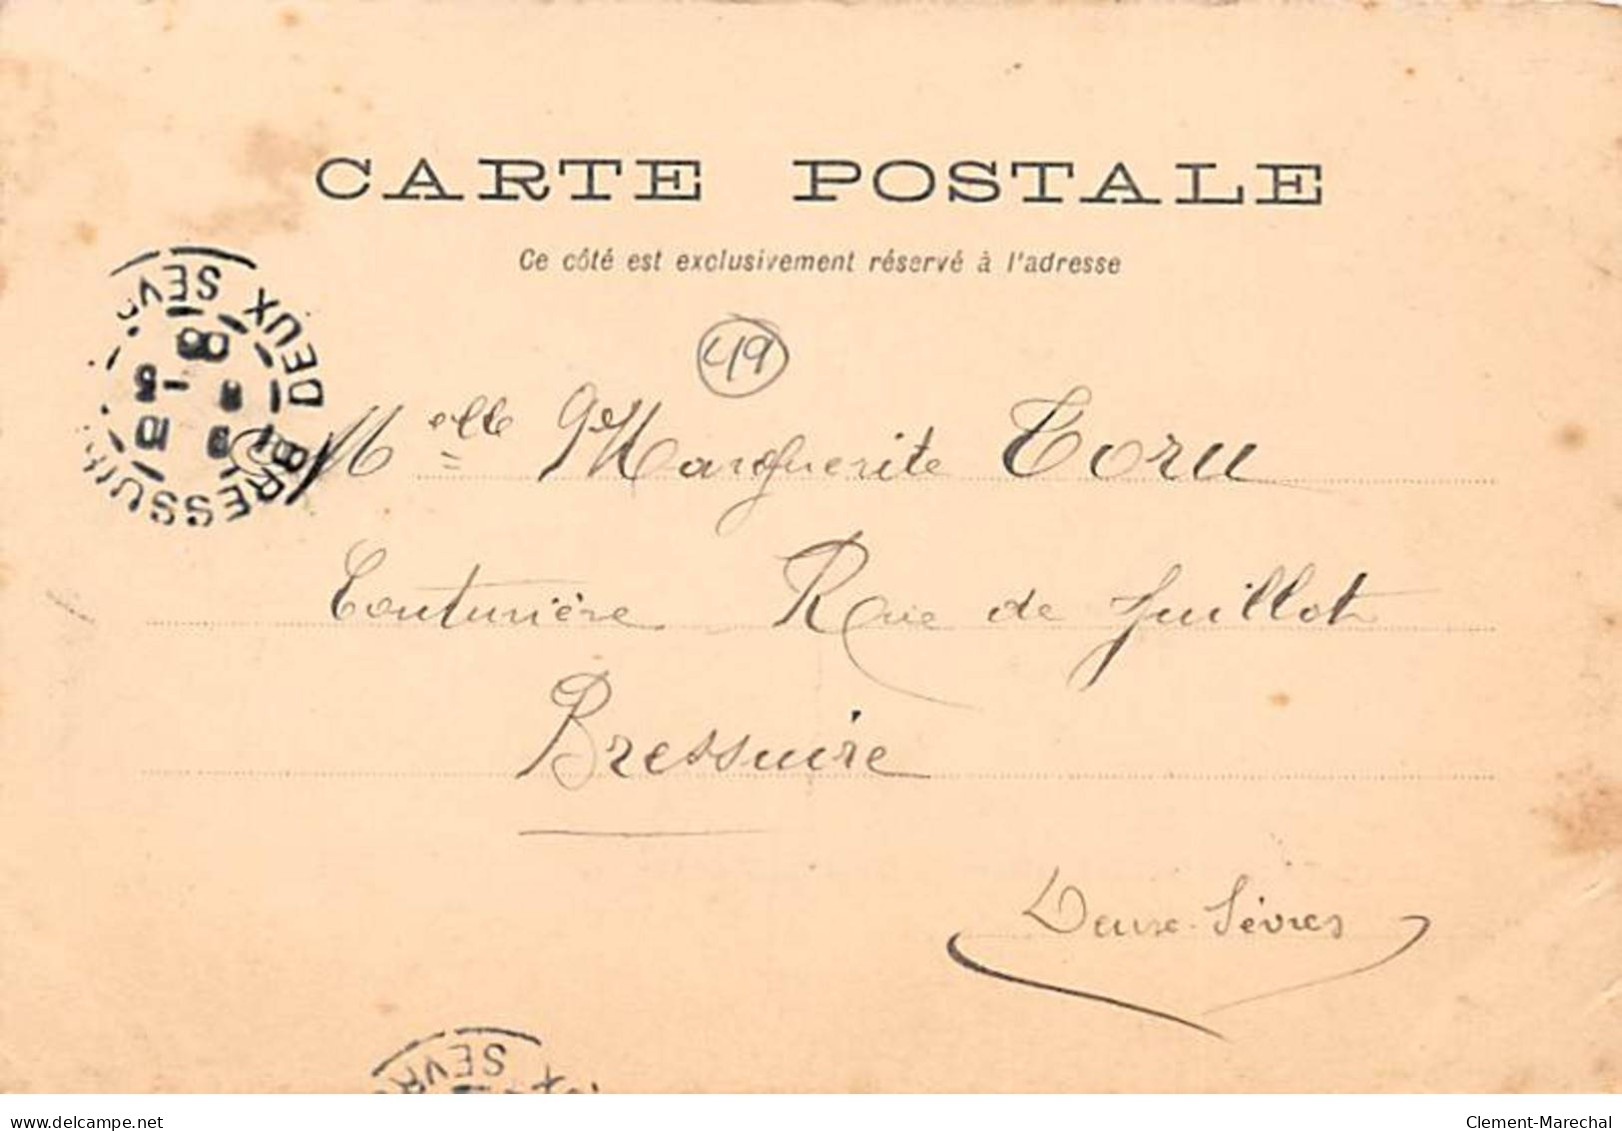 CARTE POSTALE
Ce côté est exclusivement réservé à l'adresse
49
DEUX SEVR
BRESSUIR
Melle Marguerite Toru
Couturière Rue de Juillot
Bressuire
Deux-Sèvres
SEVR
Clement-Marechal
delcampe.net